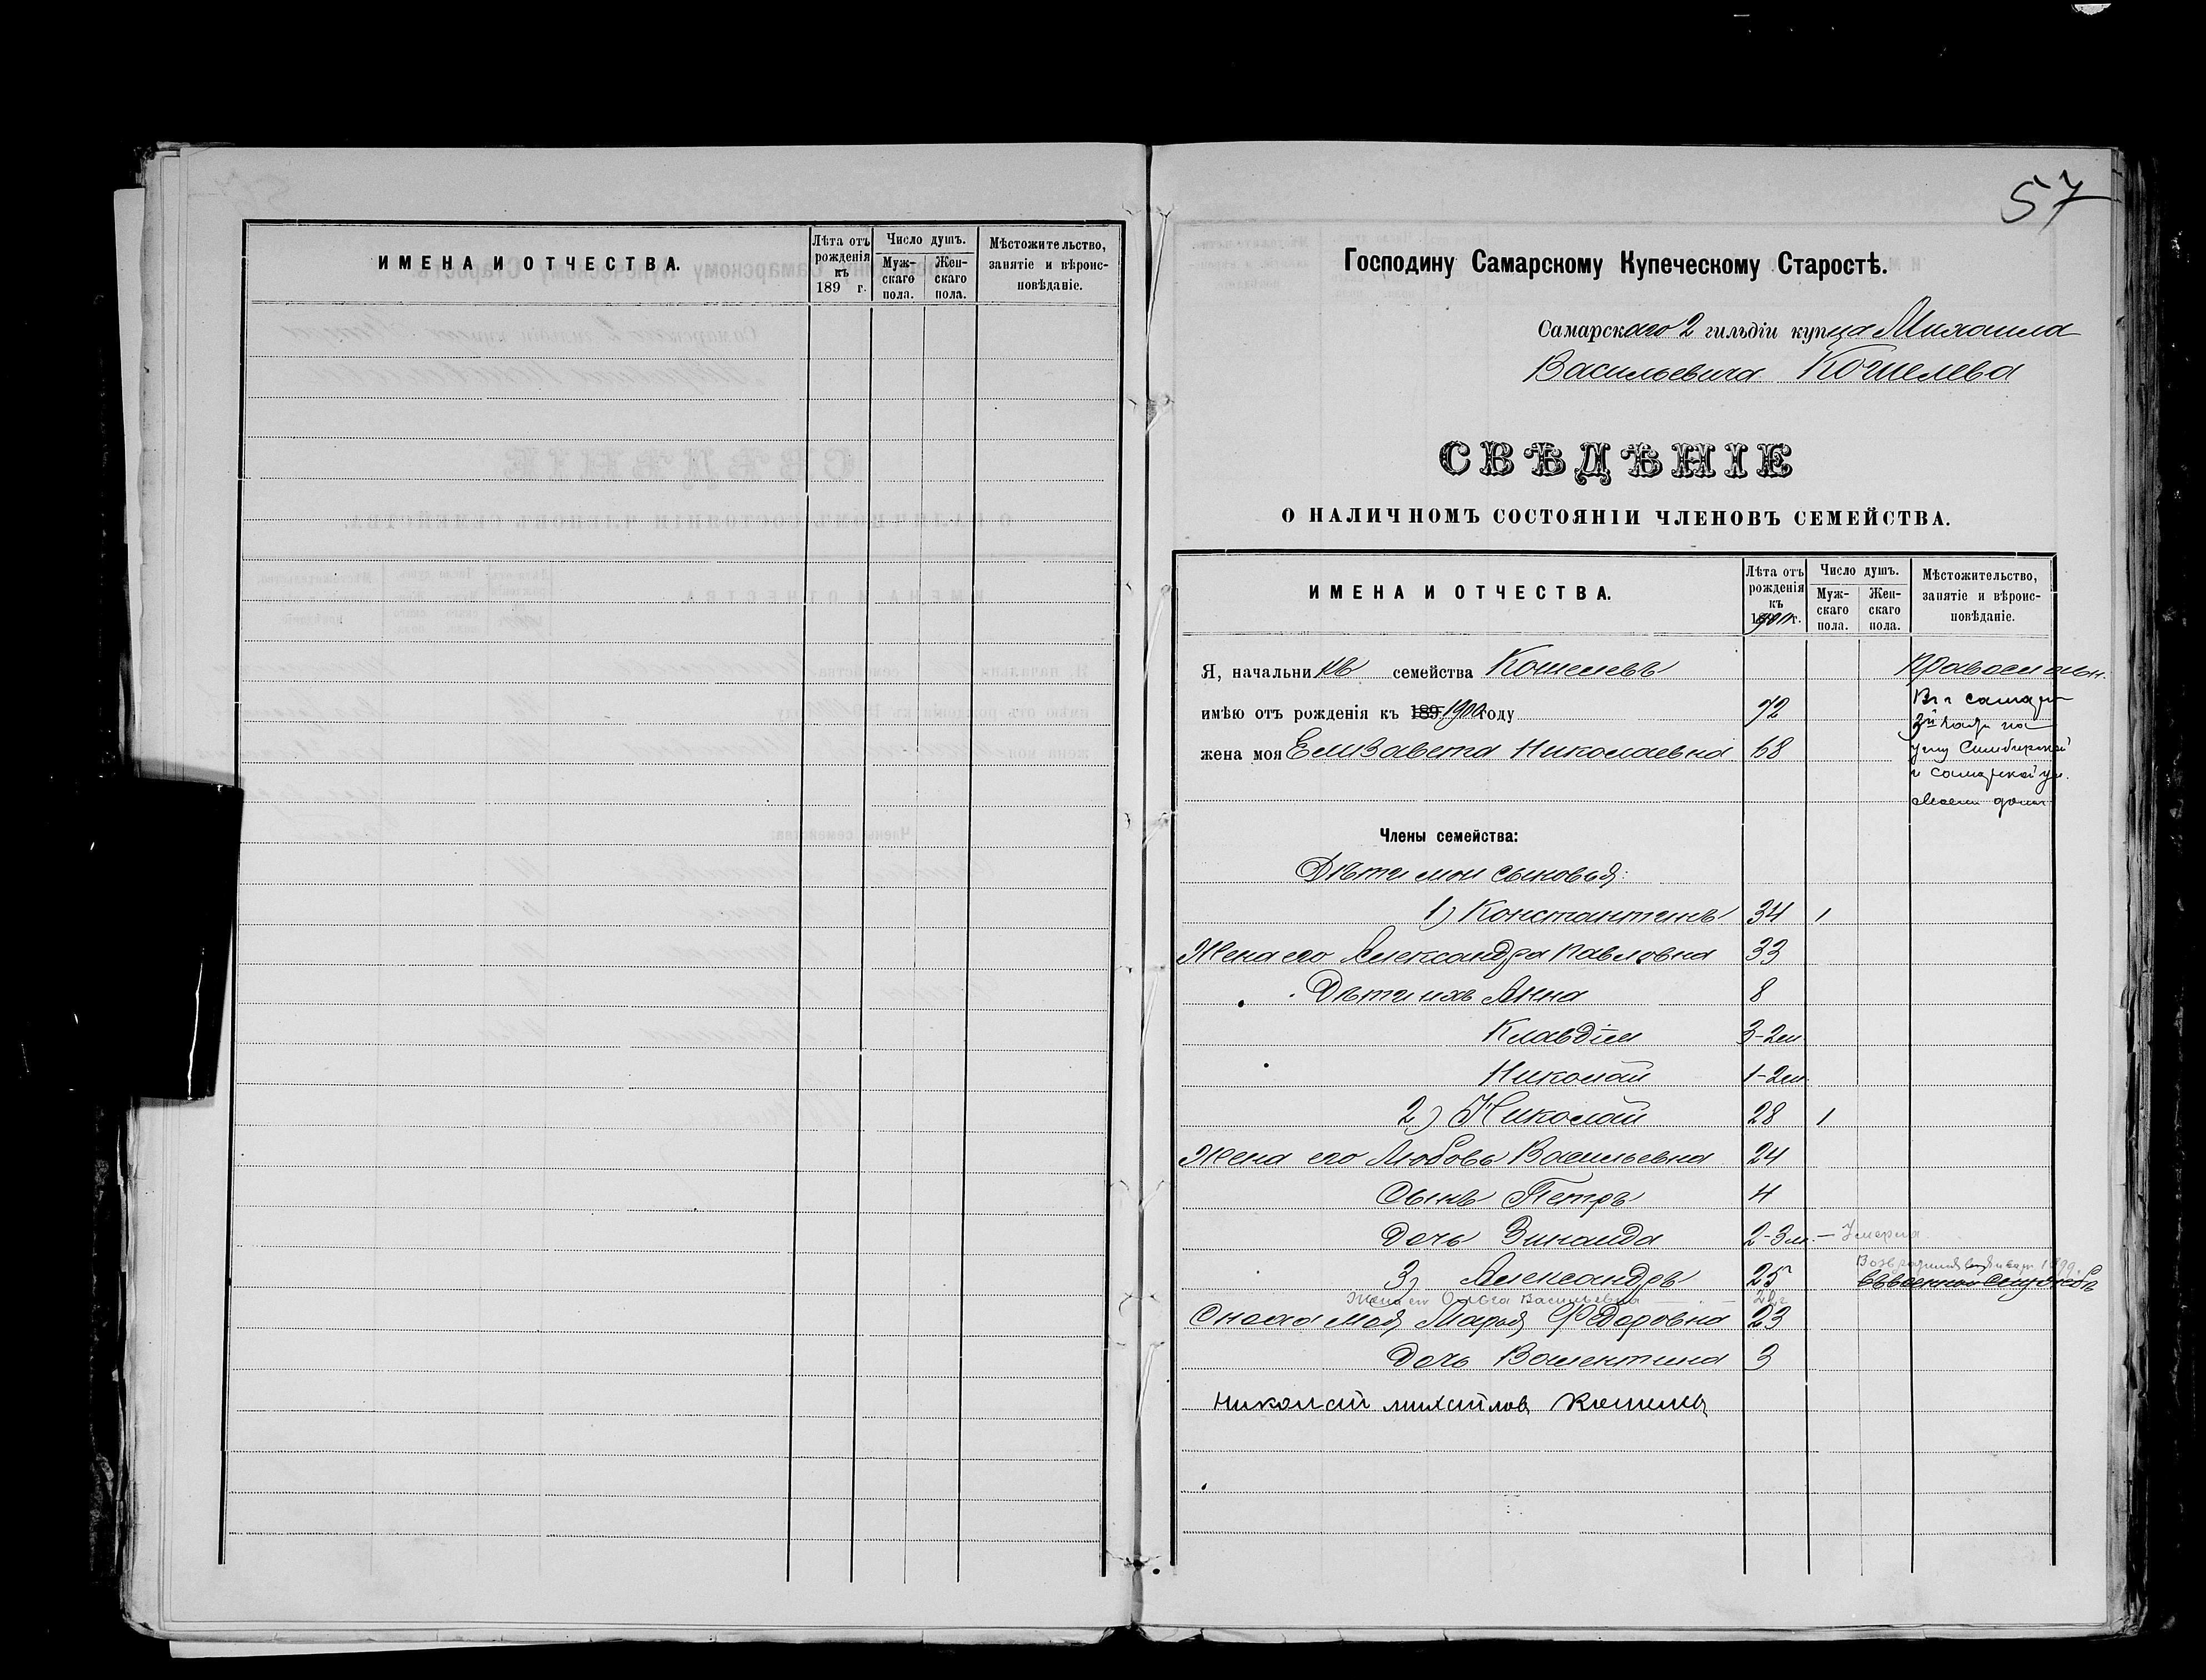 ИМЕНА И ОТЧЕСТВА.
Лѣта отъ рожденія къ 189 г.
Число душъ.
Мужскаго пола.
Женскаго пола.
Мѣстожительство, занятіе и вѣроисповѣданіе.
57
Господину Самарскому Купеческому Старостѣ.
Самарскаго 2 гильдіи купца Михаила
Васильевича Кошелева
СВѢДѢНІЕ
О НАЛИЧНОМЪ СОСТОЯНІИ ЧЛЕНОВЪ СЕМЕЙСТВА.
ИМЕНА И ОТЧЕСТВА.
Лѣта отъ рожденія къ г.
Число душъ.
Мужскаго пола.
Женскаго пола.
Мѣстожительство, занятіе и вѣроисповѣданіе.
Я, начальникъ семейства Кошелевъ Православн.
имѣю отъ рожденія къ 189 1900 году 72
жена моя Елизавета Николаевна 68
В г Самар
3й части на
углу Симбирской
и Самарской ул.
своем доме
Члены семейства:
Дѣти мои сыновья:
1) Константинъ 34 1
Жена его Александра Павловна 33
Дѣти ихъ Анна 8
Клавдія 3-2м
Николай 1-2м.
2) Николай 28 1
Жена его Любовь Васильевна 24
Сынъ Петръ 4
Дочь Зинаида 2-3м. — Умерла
3) Александръ 25 въ военной службѣ
Жена его Ольга Васильевна
Сноха моя Марья Федоровна 23
Дочь Валентина 3
Николай Михайлов Кошелев